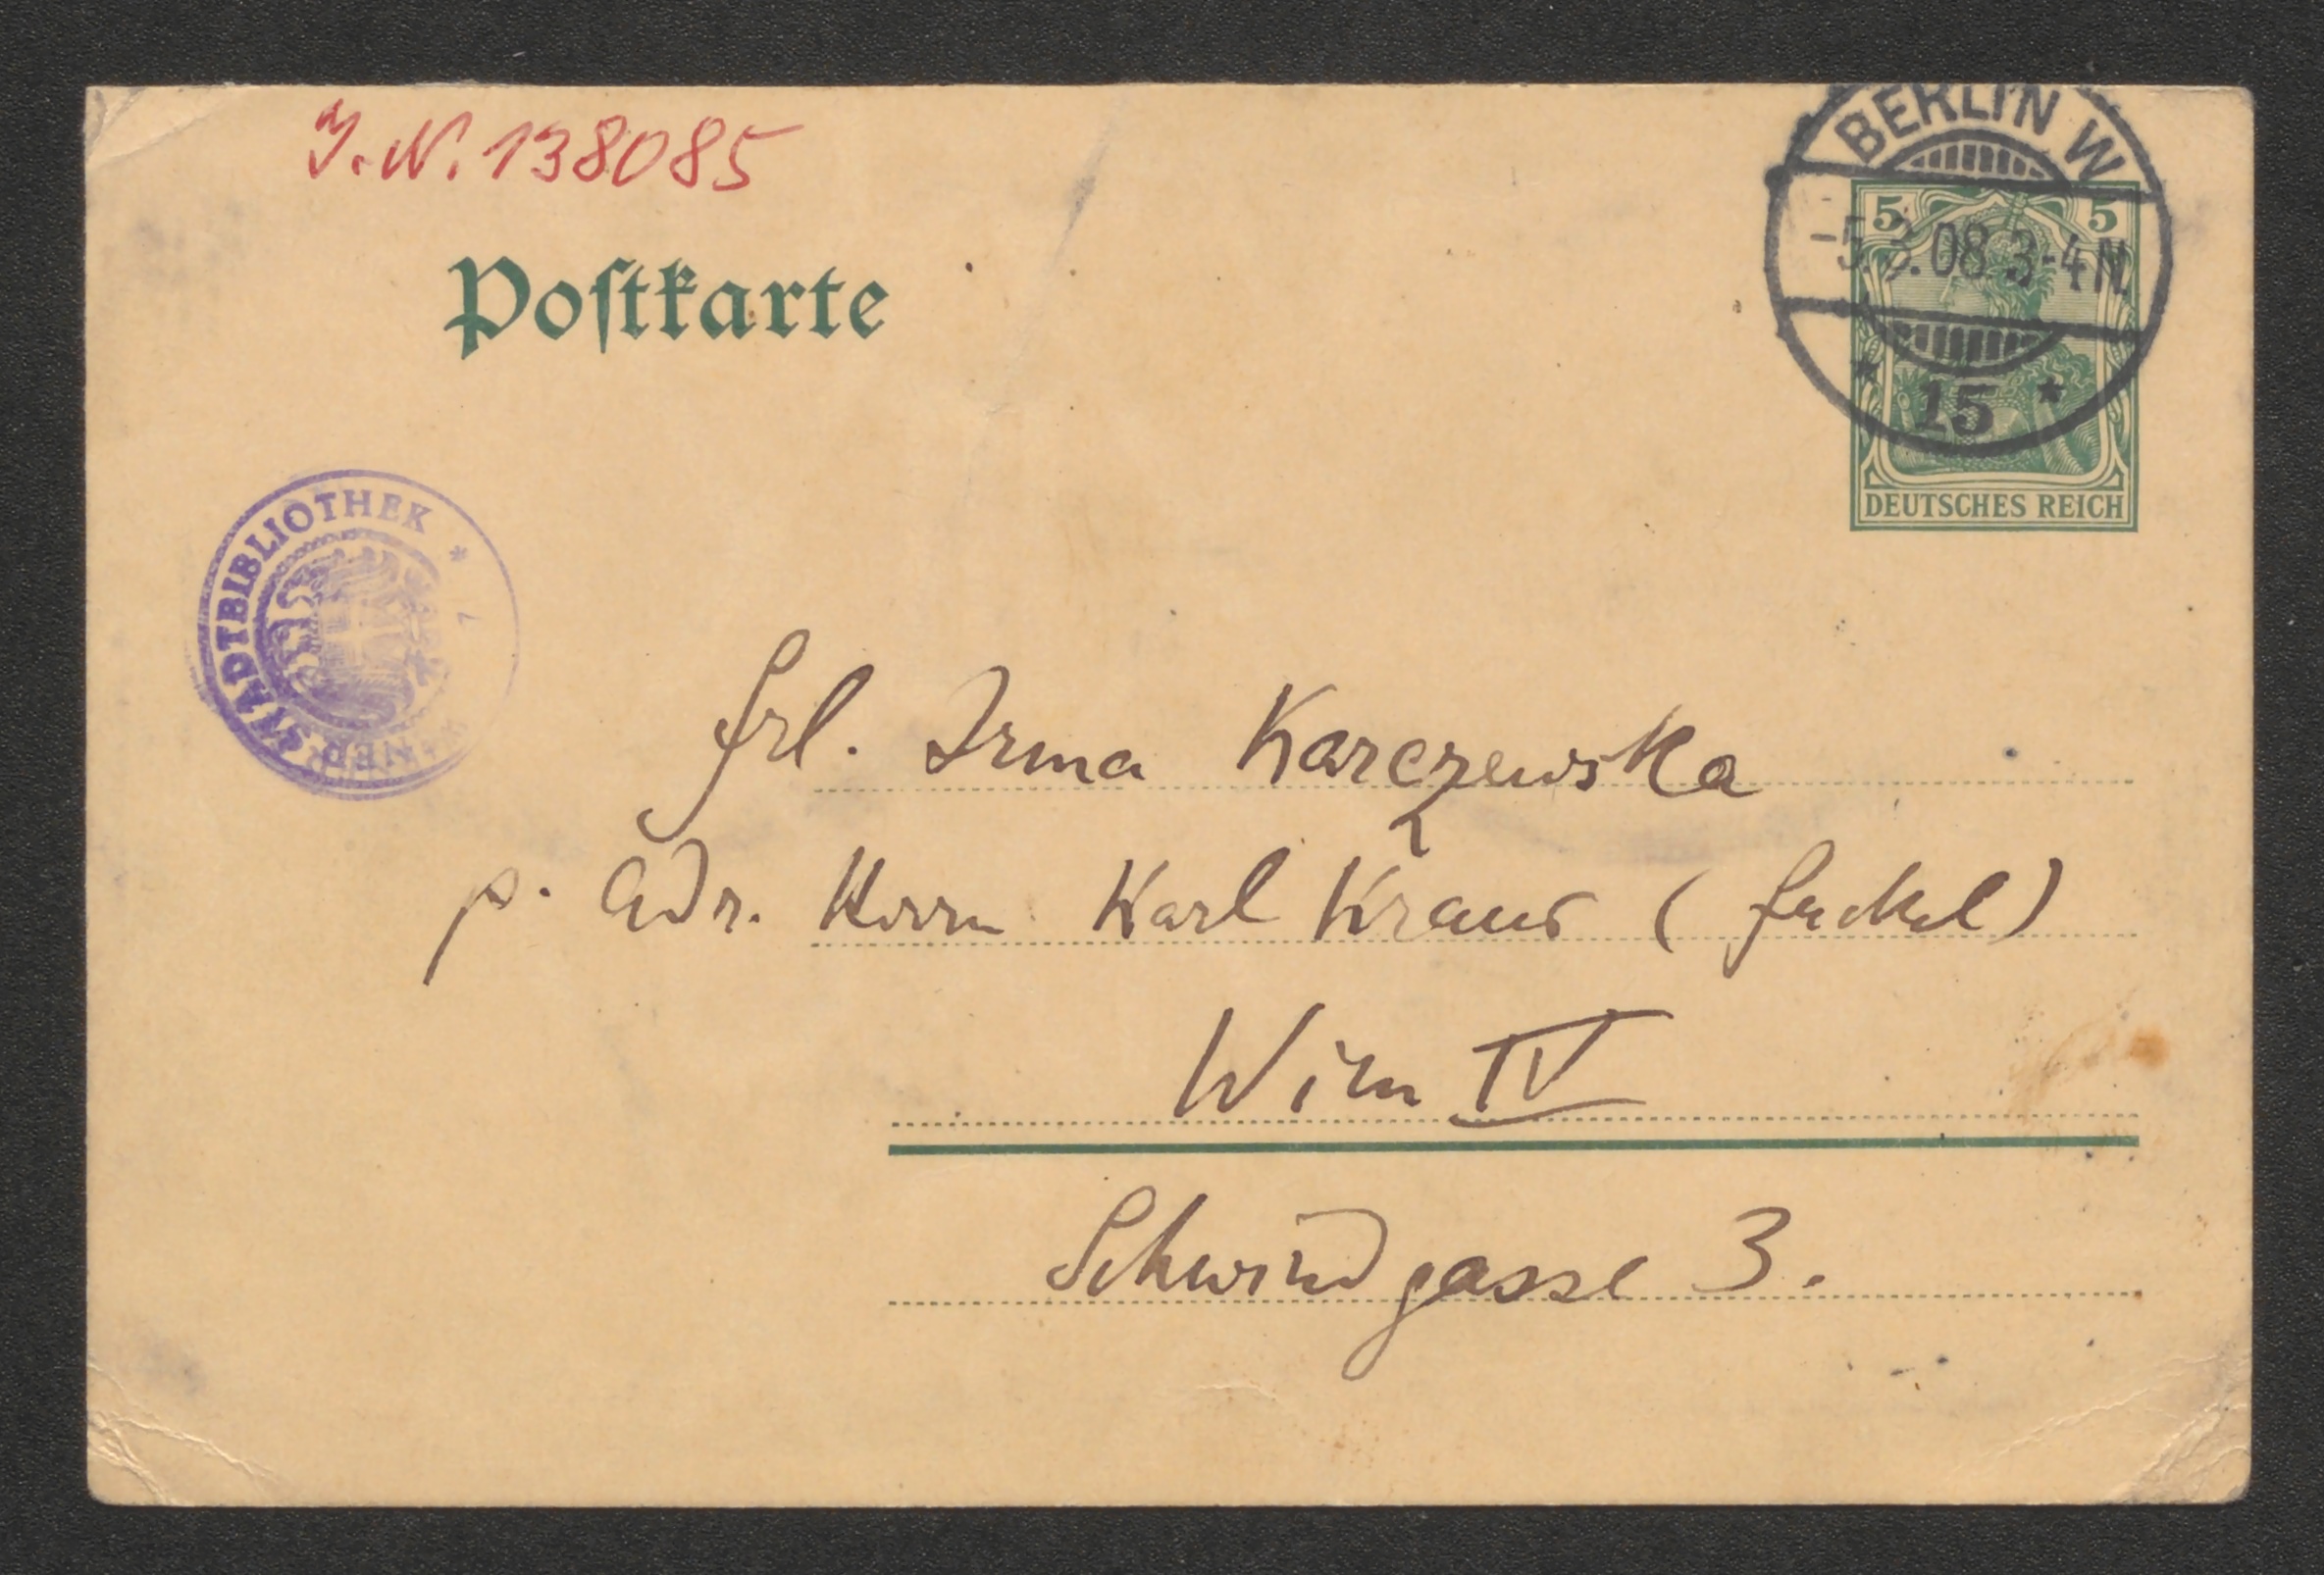 J.N. 138085
Postkarte
BERLIN W
-5.3.08.3-4N.
* 15 *
5 5
DEUTSCHES REICH
STADTBIBLIOTHEK *
Frl. Irma Karczewska
p. Adr. Herrn Karl Kraus (Fackel)
Wien IV
Schwindgasse 3.